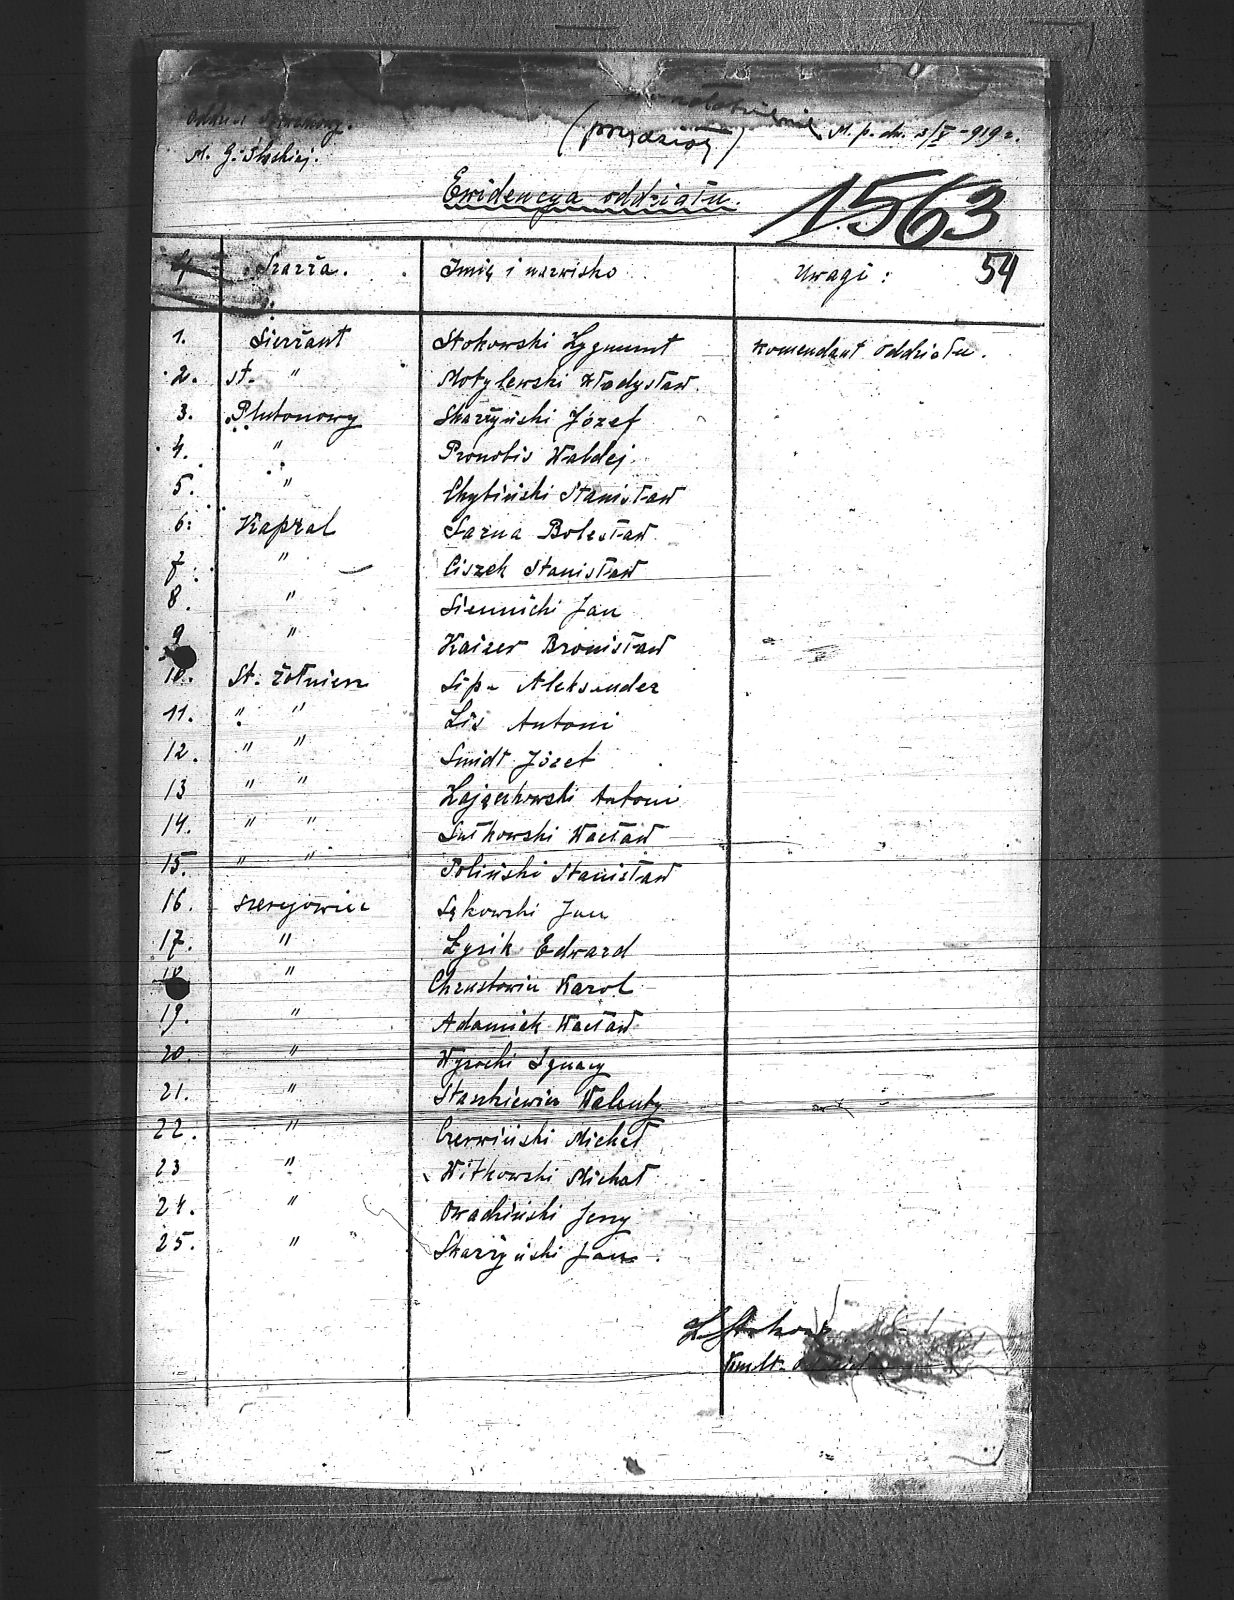 (przydział) M. p. dn. 3/V - 919 r.
M. G. Śląskiej.
Ewidencya oddziału.
1563
Szarża. Imię i nazwisko Uwagi: 54
1. Sierżant Stokowski Zygmunt Komendant oddziału.
2. st. " Motylewski Władysław.
3. Plutonowy Skarżyński Józef
4. " Pronobis Waldej.
5. " Chybiński Stanisław
6. Kapral Sarna Bolesław
7. " Ciszek Stanisław
8. " Siennicki Jan
9 " Kaizer Bronisław
10. St. żołnierz Lipa Aleksander
11. " " Lis Antoni
12. " " Smidt Józef
13 " " Zajączkowski Antoni
14. " " Sutkowski Wacław
15. " " Poliński Stanisław
16. szeregowiec Sękowski Jan
17. " Łysik Edward
18 " Chrustowicz Karol
19. " Adamiak Wacław
20. " Wysocki Ignacy
21. " Staszkiewicz Walenty
22. " Czerwiński Michał
23 " Witkowski Michał
24. " Owadziński Jerzy
25. " Skarżyński Jan.